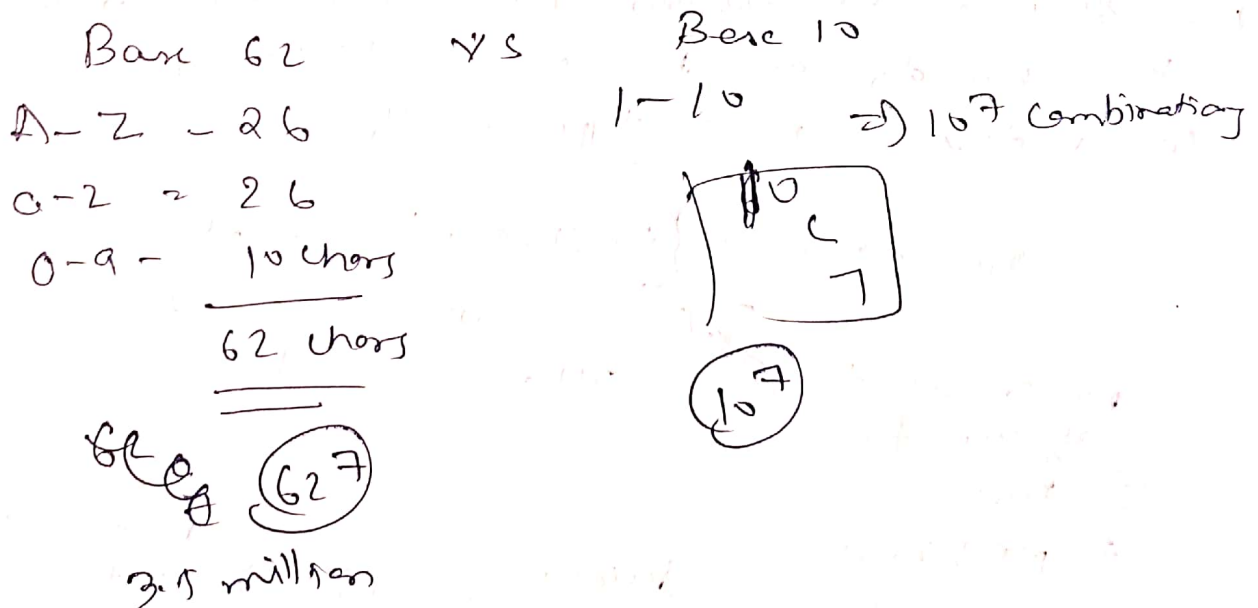 Base 62 vs Base 10
A-Z - 26
a-z = 26
0-9 - 10 chars
62 chars
62^7
3.5 million
1-10 => 10^7 combinations
10
C
7
10^7